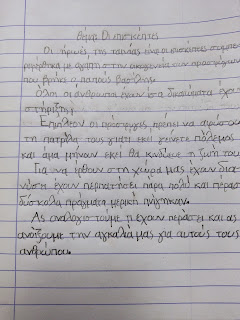 Θέμα: Οι πρόσφυγες
Οι ήρωες της ταινίας είναι οι
με αγάπη στην οικογένεια των προσφύγων
που βρήκε ο παπούς Βασίλης.
Όλοι οι άνθρωποι έχουν ίσα δικαιώματα,
στήριξης.
Επιπλέον οι πρόσφυγες πρέπει να αφήσουν
τη πατρίδα τους γιατί εκεί γίνετε πόλεμος
και άμα μήνουν εκεί θα κινδίνευε η ζωή του
Για να έρθουν στη χώρα μας έχουν διά-
νύση έχουν περπατήσει πάρα πολύ και πέρασ
δύσκολα πράγματα μερικοί πνίγηκαν.
Ας αναλογιστούμε τι έχουν περάσει και ας
ανοίξουμε την αγκαλιά μας για αυτούς τους
ανθρώπου.